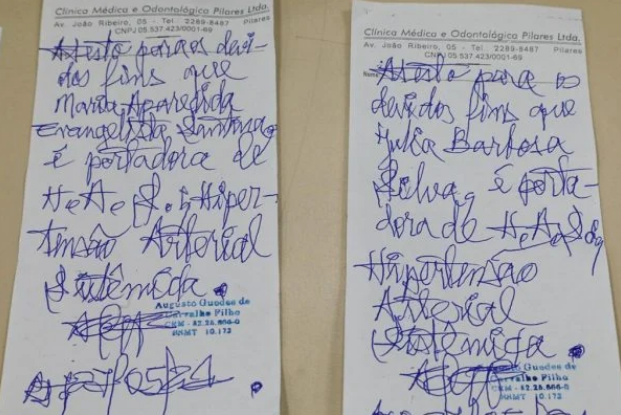 Clínica Médica e Odontológica Pilares Ltda.
Av. João Ribeiro, 05 - Tel. 2289-8487 Pilares
CNPJ 05.537.423/0001-69
Atesto para os devi-
dos fins que
Maria Aparecida
Evangelista Santana,
é portadora de
H.A.S., Hiper-
tensão Arterial
Sistêmica.
Augusto Guedes de
Carvalho Filho
CRM - 52.25.
10.172
Clínica Médica e Odontológica Pilares Ltda.
Av. João Ribeiro, 05 - Tel. 2289-8487 Pilares
CNPJ 05.537.423/0001-69
Atesto para os
devidos fins que
Julia Barbosa
Silva, é porta-
dora de H.A.S.,
Hipertensão
Arterial
Sistêmica.
Guedes de
Carvalho Filho
10.172